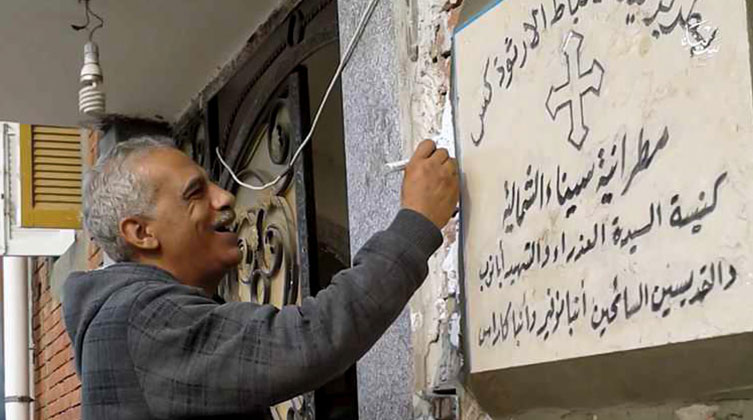 الاقباط الارثوذكس
مطرانية سيناء الشمالية
كنيسة السيدة العذراء والشهيد أبانوب
والقديسين السائحين أنبا مؤنير وأنبا كاراس